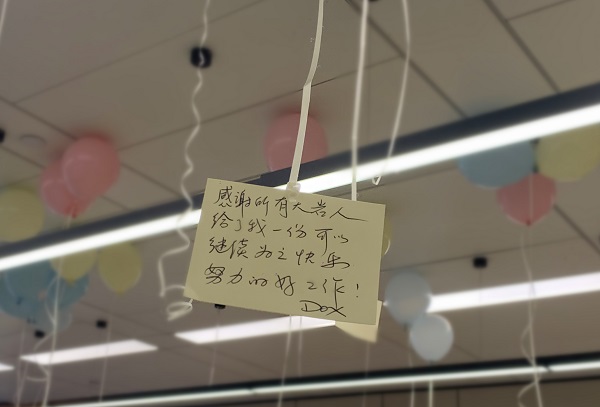 感谢所有大岩人
给了我一份可以
继续为之快乐
努力的好工作!
Dox